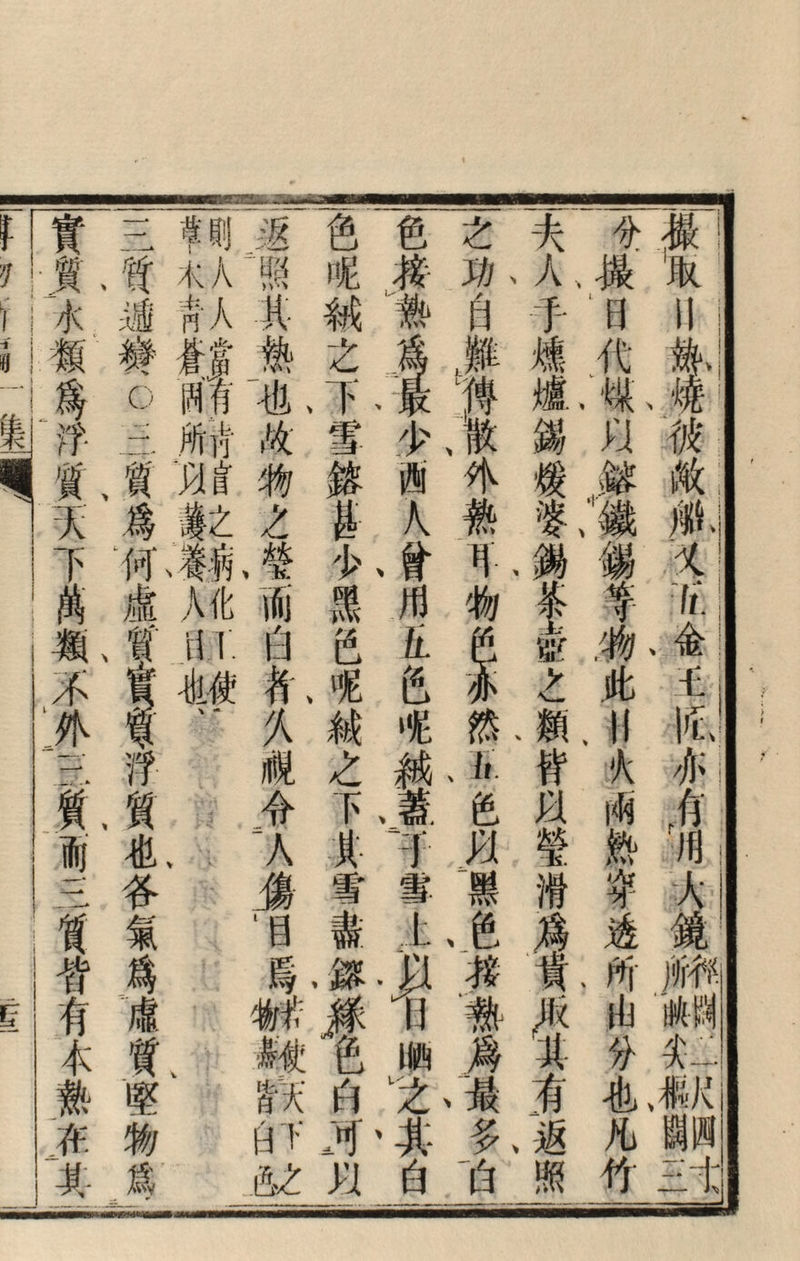 撮取日熱、燒彼敵船、又五金玉匠、亦有用大鏡徑闊二尺四寸、所映尖樞闊三
分撮日代煤、以鎔鐵錫等物、此日火兩熱穿透所由分也、凡竹
夫人手燻爐、錫煖婆、錫茶壺之類、皆以瑩滑為貴、取其有返照
之功、自難傳散外熱耳、物色亦然、五色以黑色接熱為最多、白
色接熱為最少、西人曾用五色呢絨、蓋于雪上、以日晒之、其白
色呢絨之下、雪鎔甚少、黑色呢絨之下、其雪盡鎔、緣色白、可以
返照其熱也、故物之瑩而白者、久視令人傷目焉、若使天下之物盡皆白色
則人人當有青盲之病、化工使草木青蒼、固所以護養人目也、
三質遞變○三質為何、虛質實質浮質也、各氣為虛質、堅物為
實質、水類為浮質、天下萬類、不外三質、而三質皆有本熱在其
博物新編一集